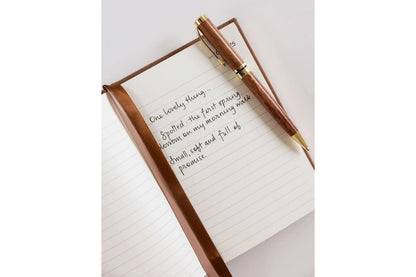 One lovely thing...
Spotted: the first spring
blossom on my morning walk
Small, soft and full of
promise.